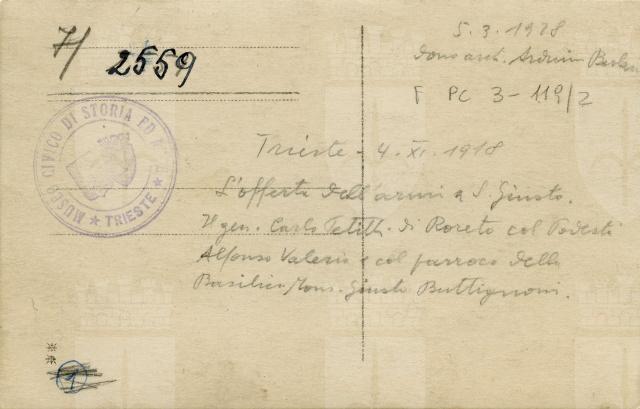 7/
2559
5.3.1928
dono arch. Arduino Berlam
F PC 3-119/2
MUSEO CIVICO DI STORIA ED A
★ TRIESTE ★
Trieste - 4. XI. 1918
L'offerta dell'armi a S. Giusto.
Il gen. Carlo Petitti di Roreto col Podestà
Alfonso Valerio e col parroco della
Basilica Mons. Giusto Buttignoni.
1